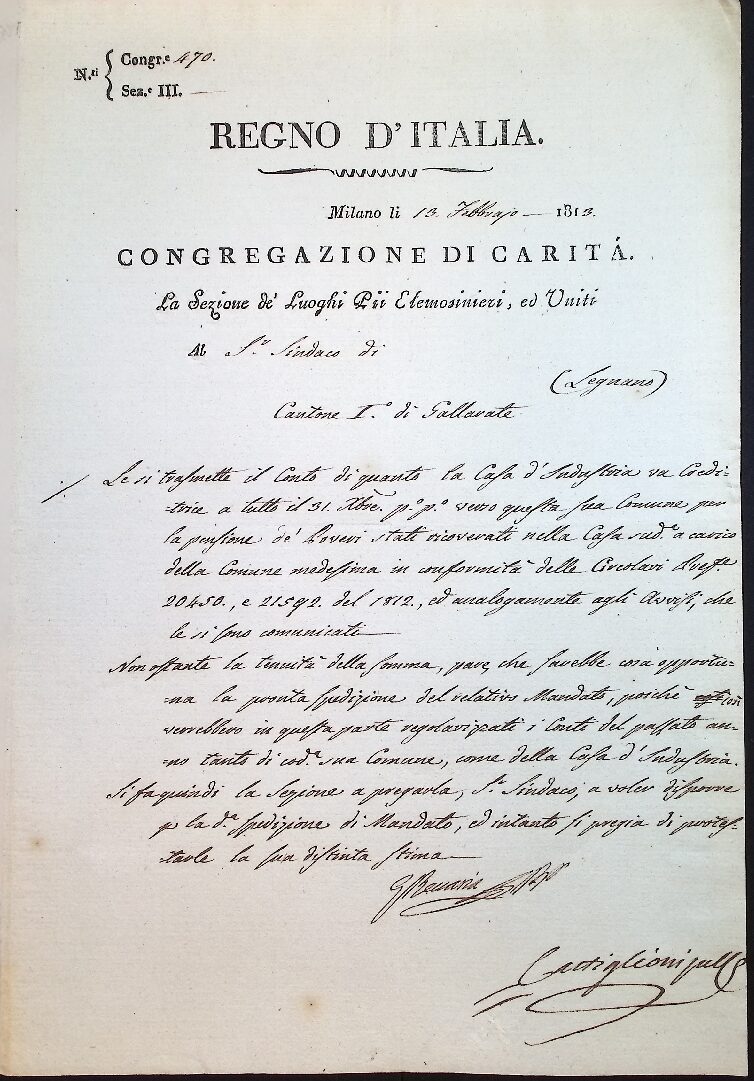 N.ri Congr.e 470.
Sez.e III. —
REGNO D'ITALIA.
Milano li 13. Febbrajo — 1813.
CONGREGAZIONE DI CARITÁ.
La Sezione de' Luoghi Pii Elemosinieri, ed Uniti
Al S.r Sindaco di
(Legnano)
Cantone I.o di Gallarate
./. Le si trasmette il Conto di quanto la Casa d'Industria va Credi-
-trice a tutto il 31. Xbre. p.o p.o verso questa sua Comune per
la pensione de' Poveri stati ricoverati nella Casa sud.a a carico
della Comune medesima in conformità delle Circolari Pref.e
20450., e 21592. del 1812., ed analogamente agli Avvisi, che
le si sono comunicati —
Non ostante la tenuità della somma, pare, che sarebbe cosa opportu-
-na la pronta spedizione del relativo Mandato, poichè così
verrebbero in questa parte regolarizzati i Conti del passato an-
-no tanto di cod.a sua Comune, come della Casa d'Industria.
Si fa quindi la Sezione a pregarla, S.r Sindaco, a voler disporre
p la d.a spedizione di Mandato, ed intanto si pregia di protes-
-tarle la sua distinta stima —
Castiglioni